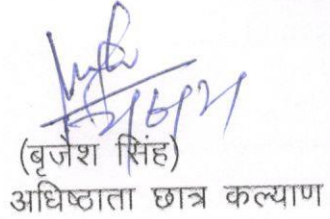 (बृजेश सिंह)
अधिष्ठाता छात्र कल्याण